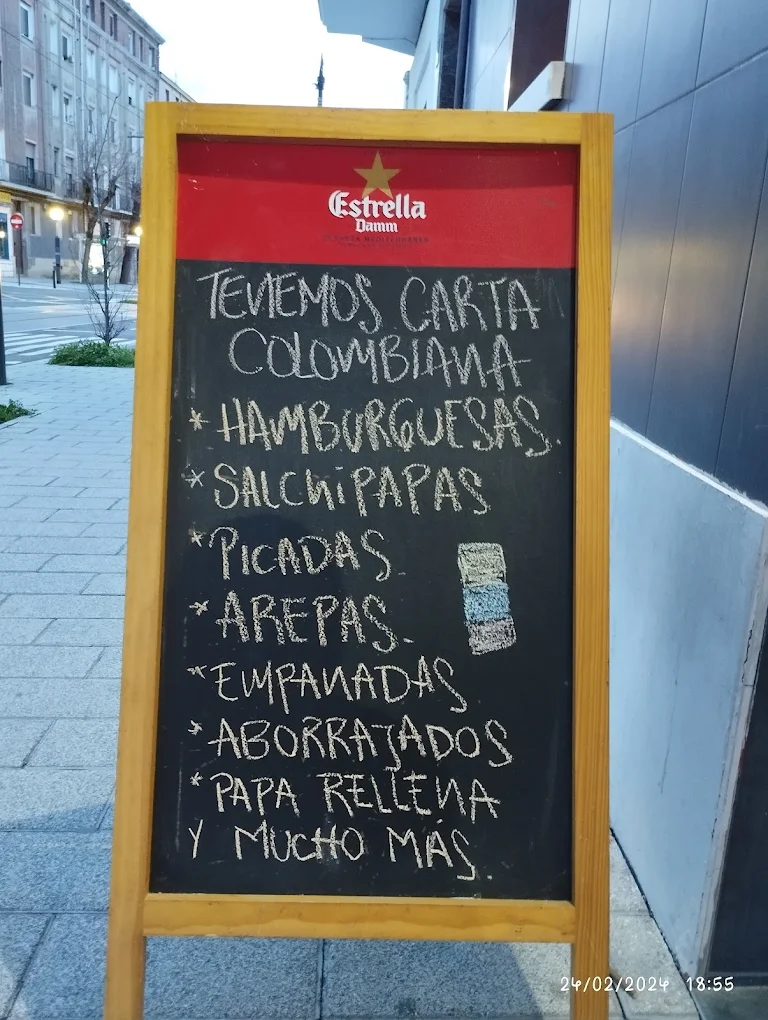 Estrella
Damm
TENEMOS CARTA
COLOMBIANA
* HAMBURGUESAS.
* SALCHiPAPAS
* PICADAS
* AREPAS.
* EMPANADAS
* ABORRAJADOS
* PAPA RELLENA
Y MUCHO MÁS.
24/02/2024 18:55